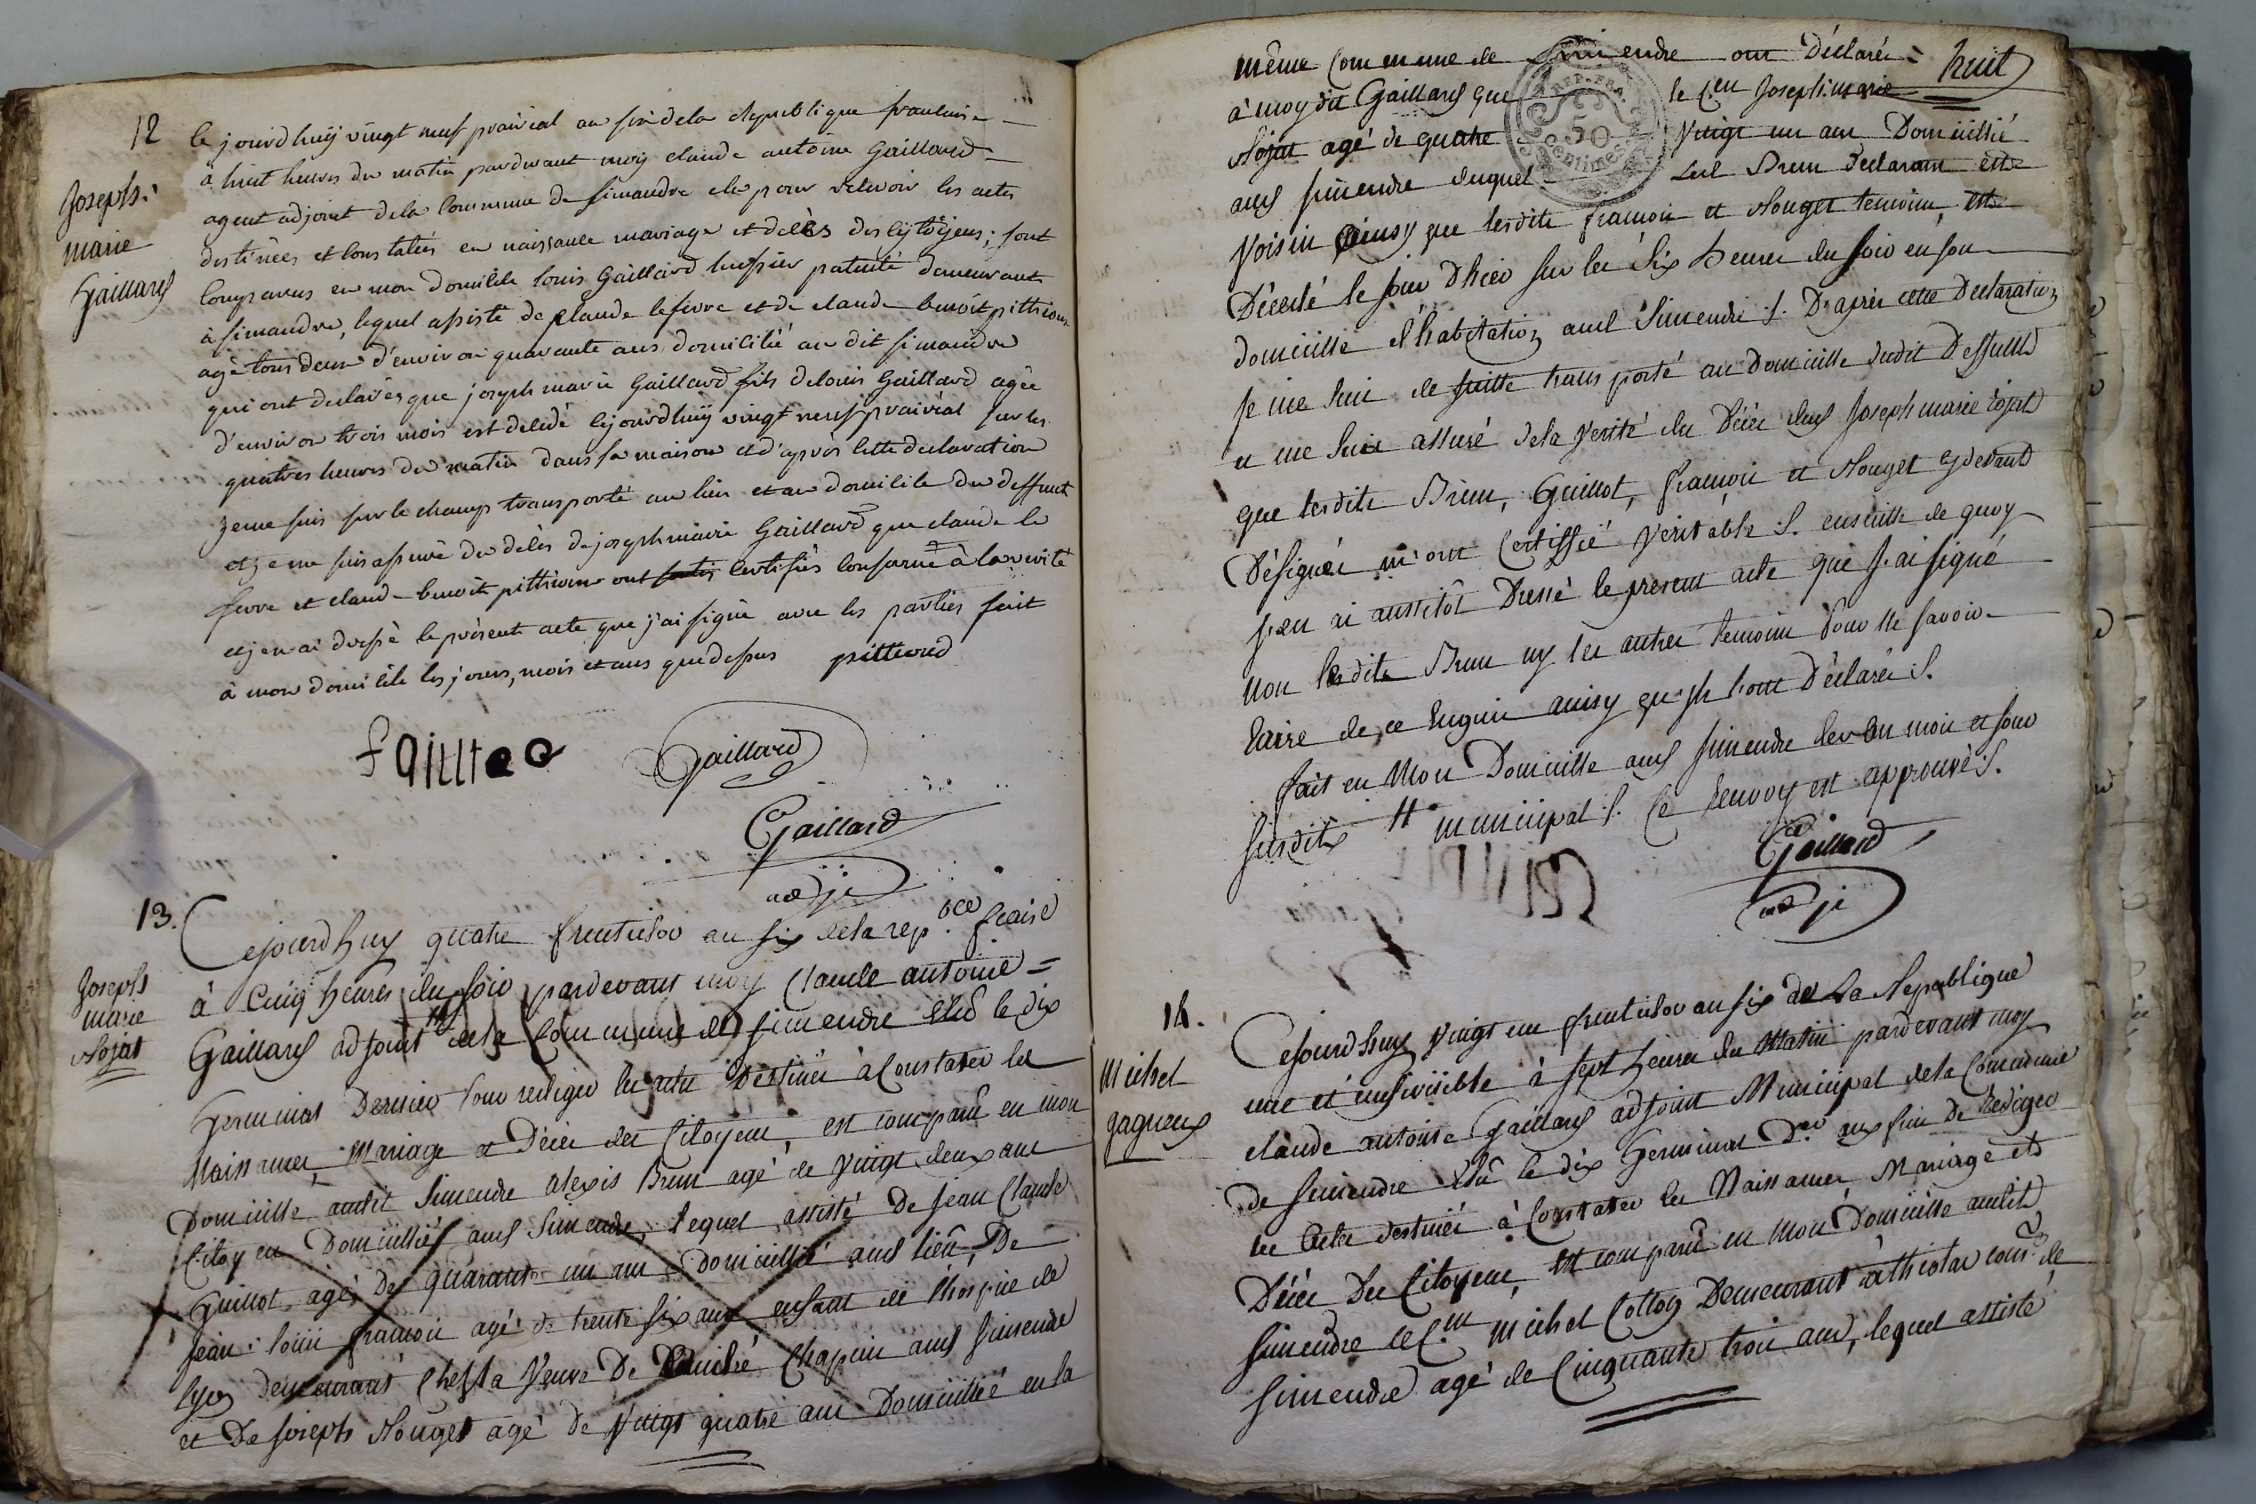 12
Joseph:
marie
Gaillard
le jourdhuÿ vingt neuf prairial an six de la republique francaise
à huit heures du matin pardevant moy claude antoine Gaillard
agent adjoint de la commune de simandre elu pour recevoir les actes
destinées et constatées en naissance mariage et décès des cytoÿens; sont
comparus en mon domicile louis Gaillard huissier patenté demeurant
à simandre, lequel assisté de claude lefevre et de claude benoit pittiond
agé tous deux d'environ quarante ans domicilié au dit simandre
qui ont declarés que joseph marie Gaillard fils de louis Gaillard agée
d'environ trois mois est decedé lejourdhuÿ vingt neuf prairéal sur les
quatres heures du matin dans sa maison et d'après cette declaration
je me suis sur le champ transporté au lieu et au domicile du deffunct
et je me suis assuré du décès de joseph marie Gaillard que claude le
fevre et claude benoit pittiond ont certifiés conforme à la verité
et j'en ai dressé le présent acte que j'ai signé avec les parties fait
à mon domicile les jours, mois et ans que dessus pittiond
Gaillard
Gaillard
adj
13.
Joseph
marie
Rojat
Cejourdhuy quatre fructidor an six de la rep.bce fcaise
à Cinq heures du soir pardevant moy Claude antoine =
Gaillard adjoint de la Commune de simendre elu le dix
Germinal Dernier pour rediger les actes Destinés à Constater les
Naissances, Mariage et Décès des Citoyens, est comparu en mon
Domicille audit Simendre alexis Brun agé de Vingt deux ans
Citoyen Domicillié aud Simendre, lequel assisté De Jean Claude
Guillot agés De quarante un ans domicillié aud lieu, De
Jean: louis françois agé de trente six ans enfant de l'hospice de
lyon demeurant Chef la Veuve De Chapuis aud Simendre
et De Joseph Nouget agé De Vingt quatre ans Domicillié en la
huit
même Commune de Simendre ont Déclarés =
à moy dit Gaillard que le C.en Joseph: marie
Rojat agé de quatre Vingt un ans Domicillié
aud simendre duquel led Brun Declarant est
Voisin ainsy que lesdits françois et Nouget temoins, est
Décedé le jour D'hier sur les Six heures du soir en son
domicille d'habitation aud Simendre ./. D'aprés cette Declaration
je me suis de suitte transporté au Domicille dudit Deffunt
et me suis assuré de la Verité du Décés dud Joseph marie Rojat
que lesdits Brun, Guillot, françois et Nouget cydevant
Désignés m'ont Certiffié Veritable ./. ensuitte de quoy
j'en ai aussitôt Dressé le present acte que J'ai signé
non lesdits Brun ny les autres temoins pour ne savoir
faire de ce Enquis ainsy qu'ils l'ont Déclarés ./.
fait en Mon Domicille aud simendre les an mois et jour
susdits # municipal ./. Ce renvoy est approuvé ./.
Gaillard
adj
14.
Michel
gagneux
Cejourdhuy Vingt un fructidor an six de La Republique
une et indivisible à sept heures du Matin pardevant moy
claude antoine Gaillard adjoint Municipal de la Commune
de simendre Elû le dix Germinal D.er aux fins De Rediger
les Actes destinés à Constater les Naissances Mariage et
Décés Des Citoyens, est comparu en mon Domicille audit
Simendre le C.en michel Cotton Demeurant à thiola com.e de
Simendre agé de Cinquante trois ans, lequel assisté